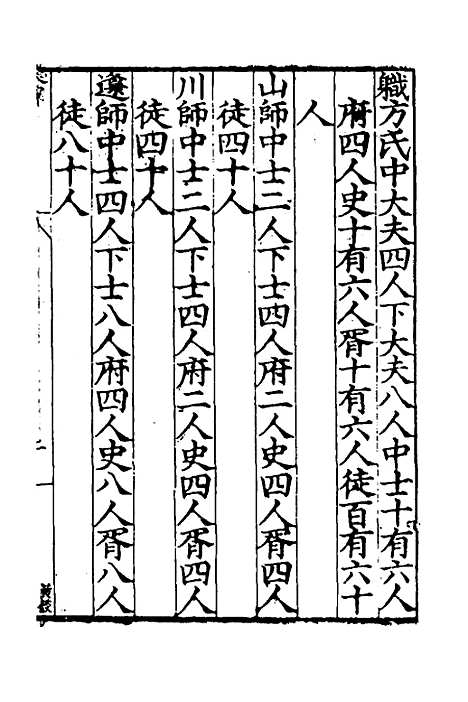 職方氏中大夫四人下大夫八人中士十有六人
府四人史十有六人胥十有六人徒百有六十
人
山師中士二人下士四人府二人史四人胥四人
徒四十人
川師中士二人下士四人府二人史四人胥四人
徒四十人
邍師中士四人下士八人府四人史八人胥八人
徒八十人